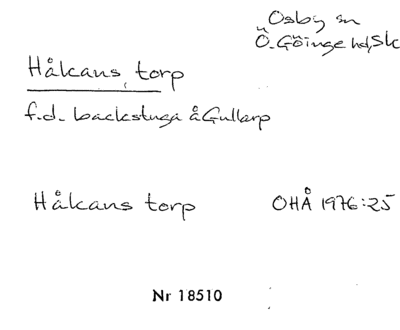 Osby sn
Ö. Göinge hd, Sk
Håkans torp
f.d. backstuga å Gullarp
Håkans torp OHÅ 1976:25
Nr 18510